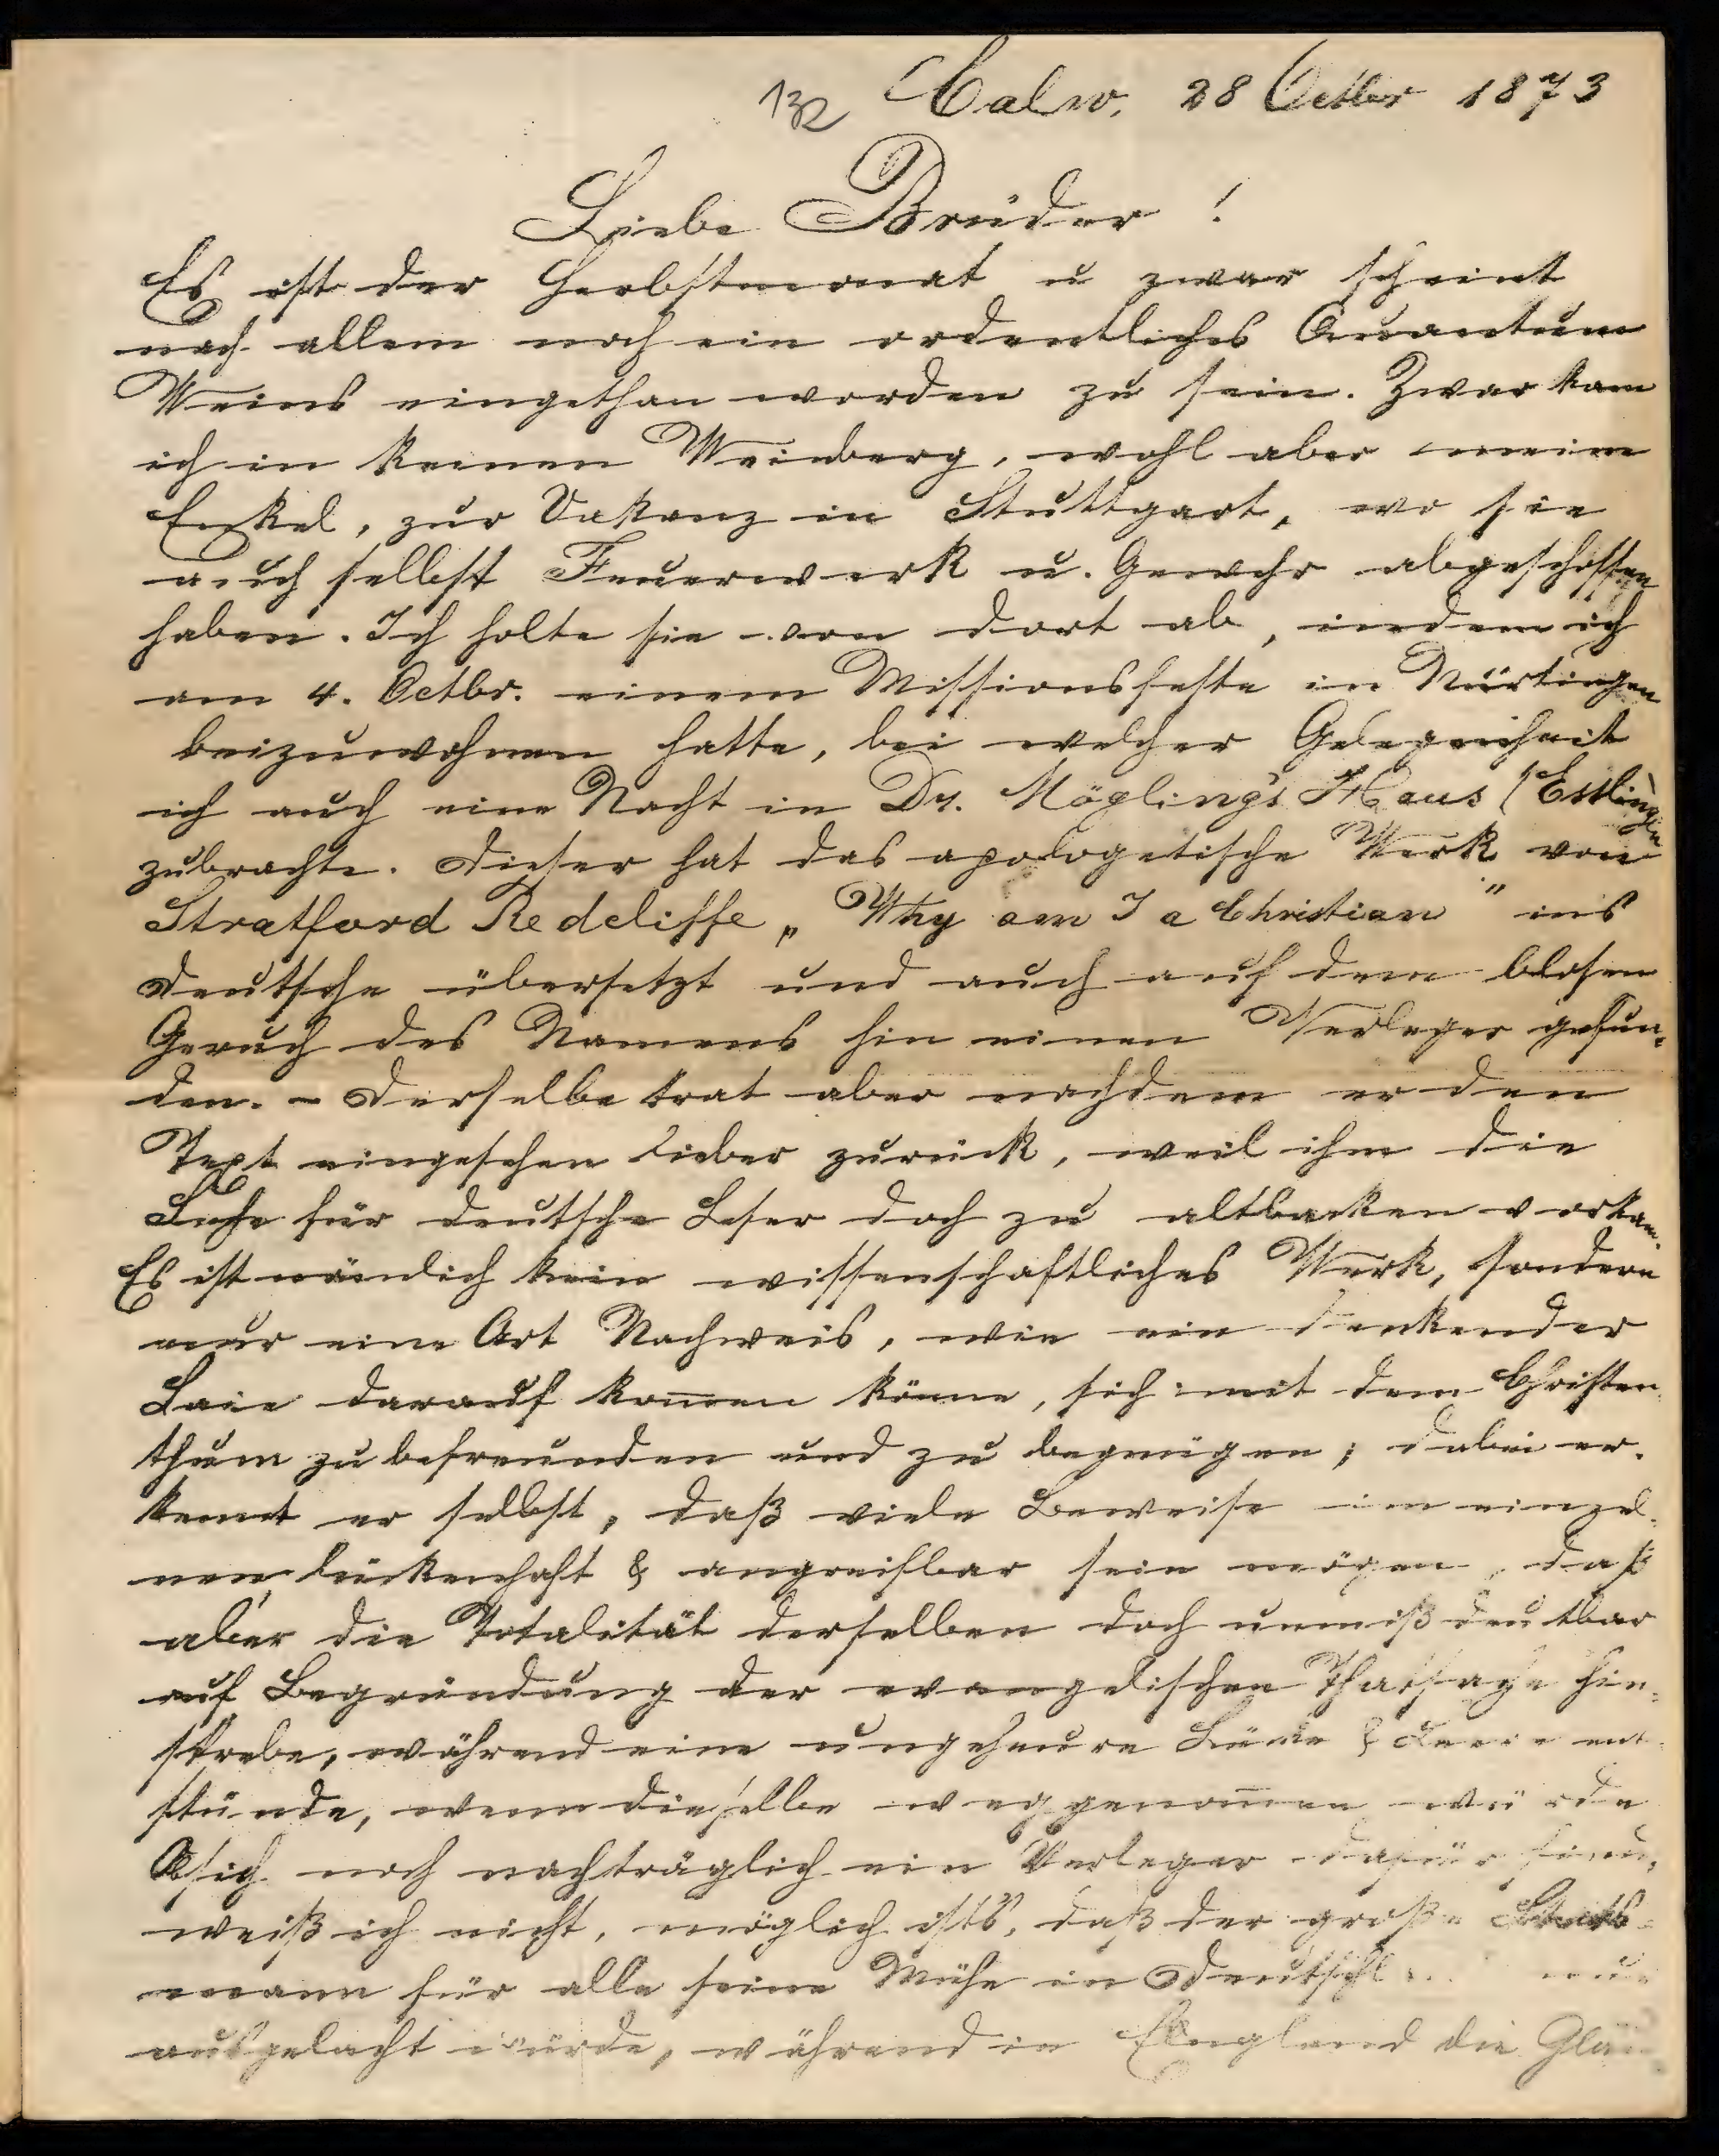 132 Calw, 28 Octbr 1873
Liebe Brüder!
Es ist der Herbstmonat u zwar scheint
nach allem noch ein ordentliches Quantum
Weins eingethan worden zu sein. Zwar kam
ich in keinen Weinberg, wohl aber meine
Enkel, zur Vakanz in Stuttgart, wo sie
auch selbst Feuerwerk u. Gewehr abgeschossen
haben. Ich holte sie von dort ab, indem ich
am 4. Octbr. einem Missionsfeste in Nürtingen
beizuwohnen hatte, bei welcher Gelegenheit
ich auch eine Nacht in Dr. Möglings Haus (Esslingen
zubrachte. Dieser hat das apologetische Werk von
Stratford Redcliffe „Why am I a Christian" ins
Deutsche übersetzt und auch auf dem blosen
Geruch des Namens hin einen Verleger gefun-
den. - Derselbe trat aber nachdem er den
Text eingesehen lieber zurück, weil ihm die
Sache für deutsche Leser doch zu altbacken vorkam.
Es ist nämlich kein wissenschaftliches Werk, sondern
nur eine Art Nachweis, wie ein denkender
Laie darauf kom̅en könne, sich mit dem Christen
thum zu befreunden und zu begnügen; dabei er-
kennt er selbst, daß viele Beweise im einzel-
nen lückenhaft & angreifbar sein mögen, daß
aber die Totalität derselben doch unmißdeutbar
auf Begründung der evangelischen Thatsache hin-
strebe, während eine ungeheure Lücke & Leere ent-
stünde, wenn dieselbe weggenom̅en würde
Ob sich noch nachträglich ein Verleger dafür
weiß ich nicht, möglich ists, daß der große Stats-
mann für alle seine Mühe in nur
ausgelacht würde, während in England die